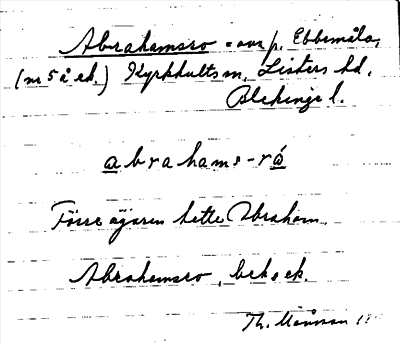 Abrahamsro = avs. p. Ebbemåla,
(nr 5 å ek.) Kyrkhults sn, Listers hd,
Blekinge l.
abrahams-ró
Förre ägaren hette Abraham.
Abrahamsro, bek. o ek.
Th. Månsson